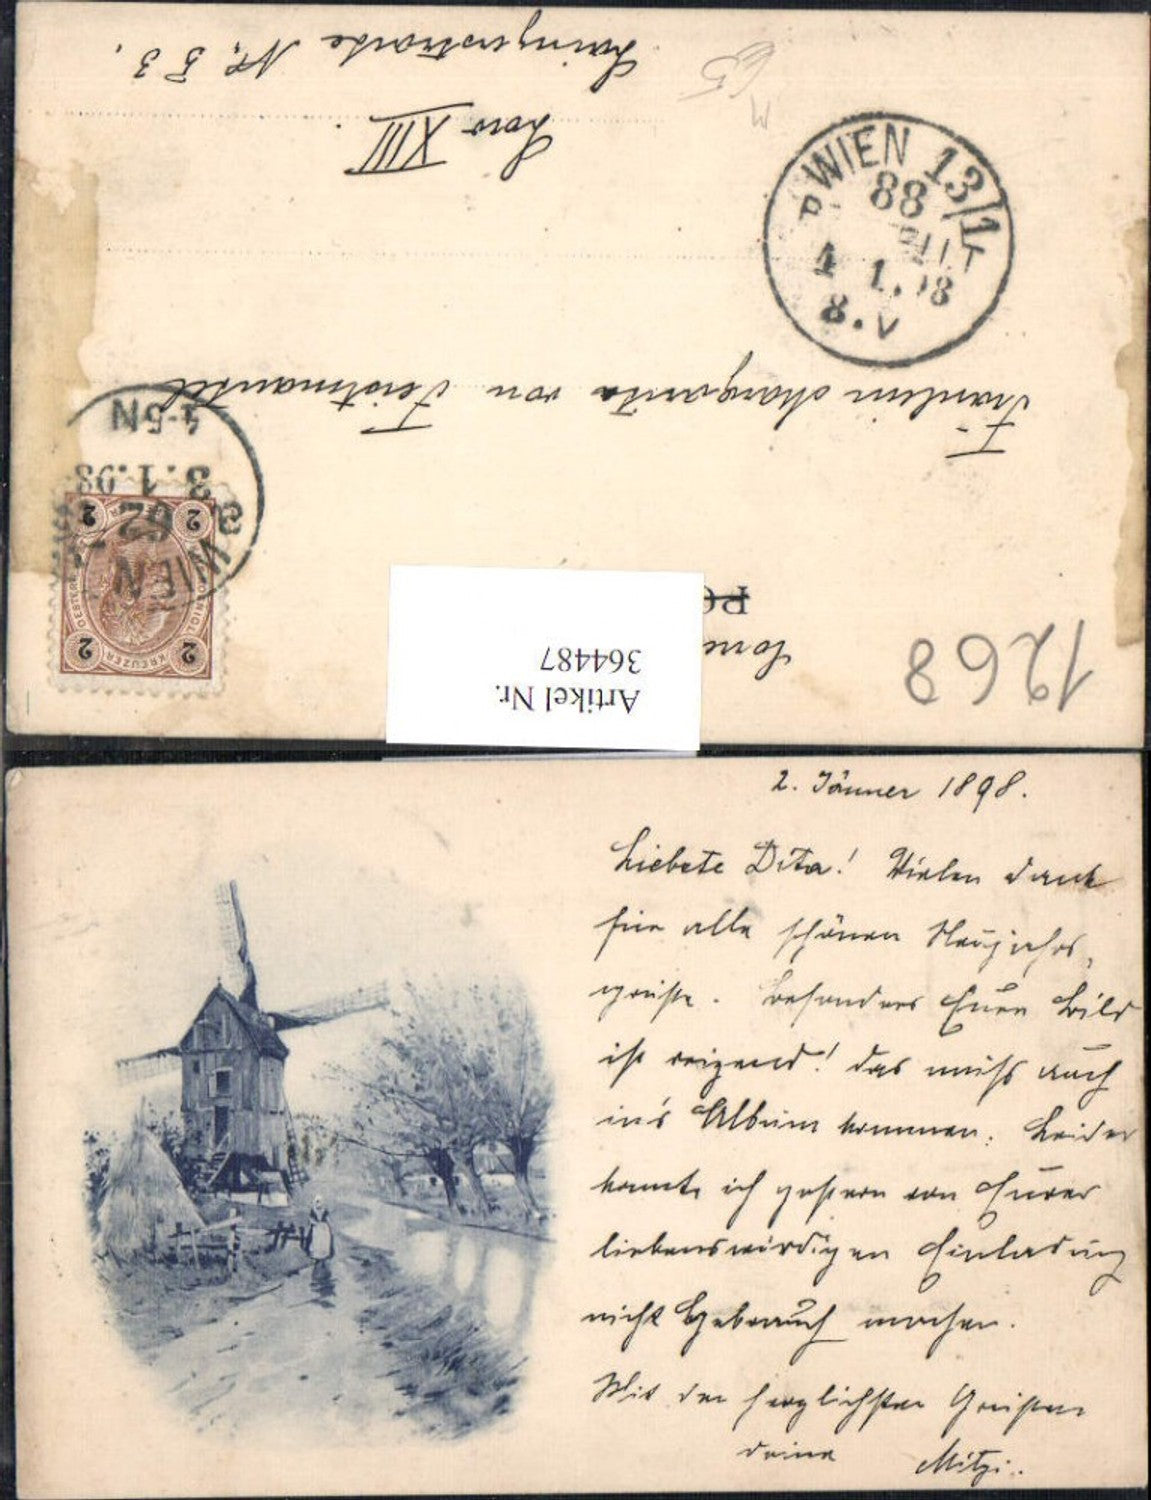 Lainzerstraße Nr. 53.
Loco XIII.
65
WIEN 13/1
88
4 1. 98
8.V
Fräulein Margarita von
4-5N
3.1.98
WIEN
62
2 2
KREUZER
2 2
Artikel Nr.
364487
1268
2. Jänner 1898.
Liebste Dita! Vielen Dank
für alle schönen Neujahrs-
grüße. Besonders Euer Bild
ist reizend! Das muß auch
in's Album kommen. Leider
konnte ich gestern von Eurer
liebenswürdigen Einladung
nicht Gebrauch machen.
Mit den herzlichsten Grüßen
deine Mitzi.